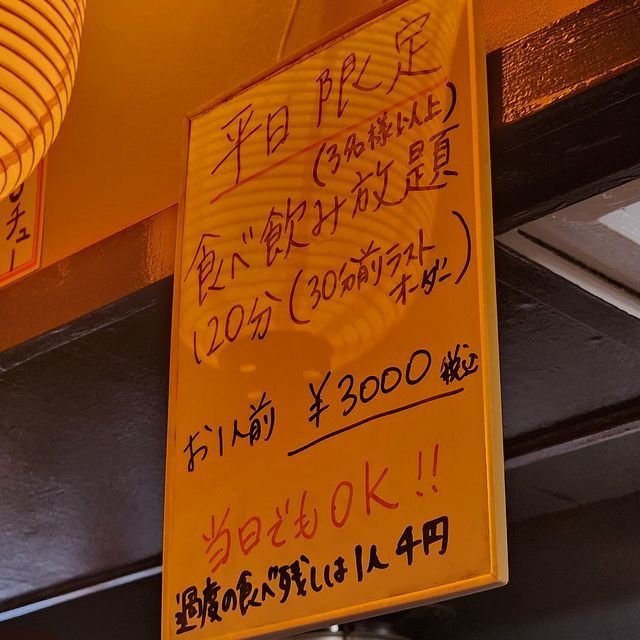 平日限定
(3名様以上)
食べ飲み放題
120分(30分前ラスト
オーダー)
お1人前 ¥3000 税込
当日でもOK!!
過度の食べ残しは1人4円
チュー